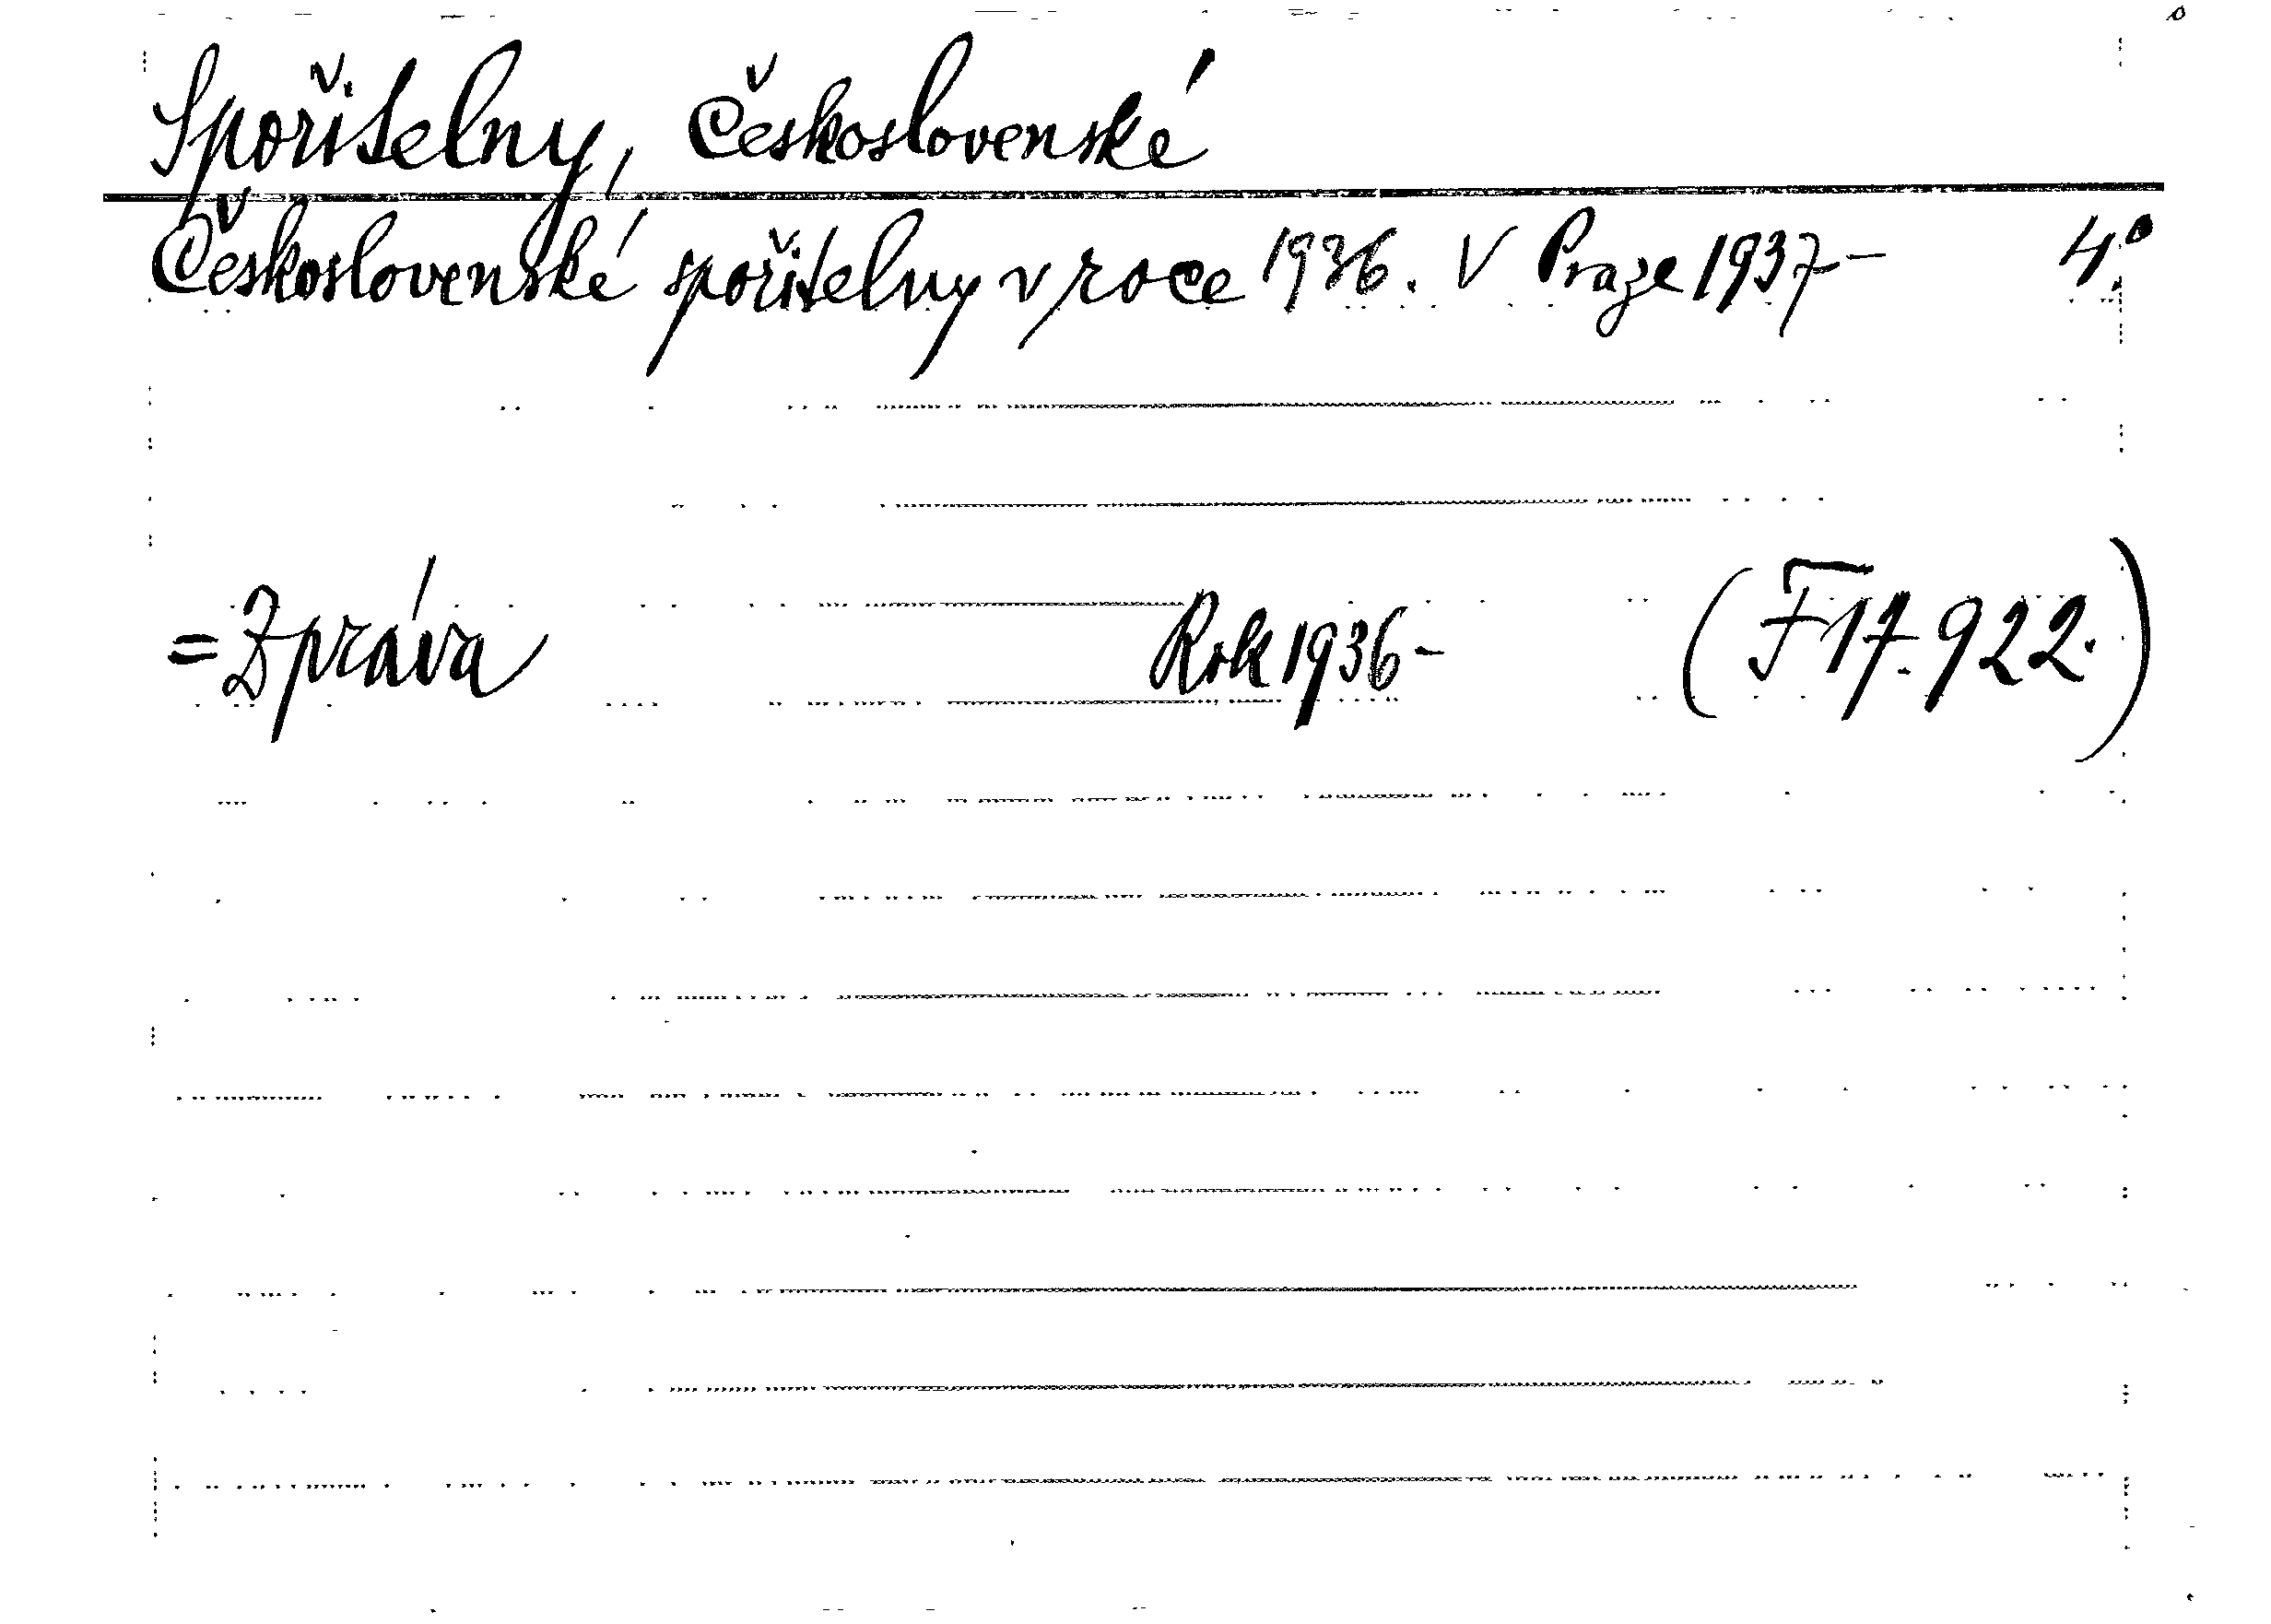 Spořitelny, Československé
Československé spořitelny v roce 1936. V Praze 1937- 4.°
= Zpráva Rok 1936- (F 17.922.)